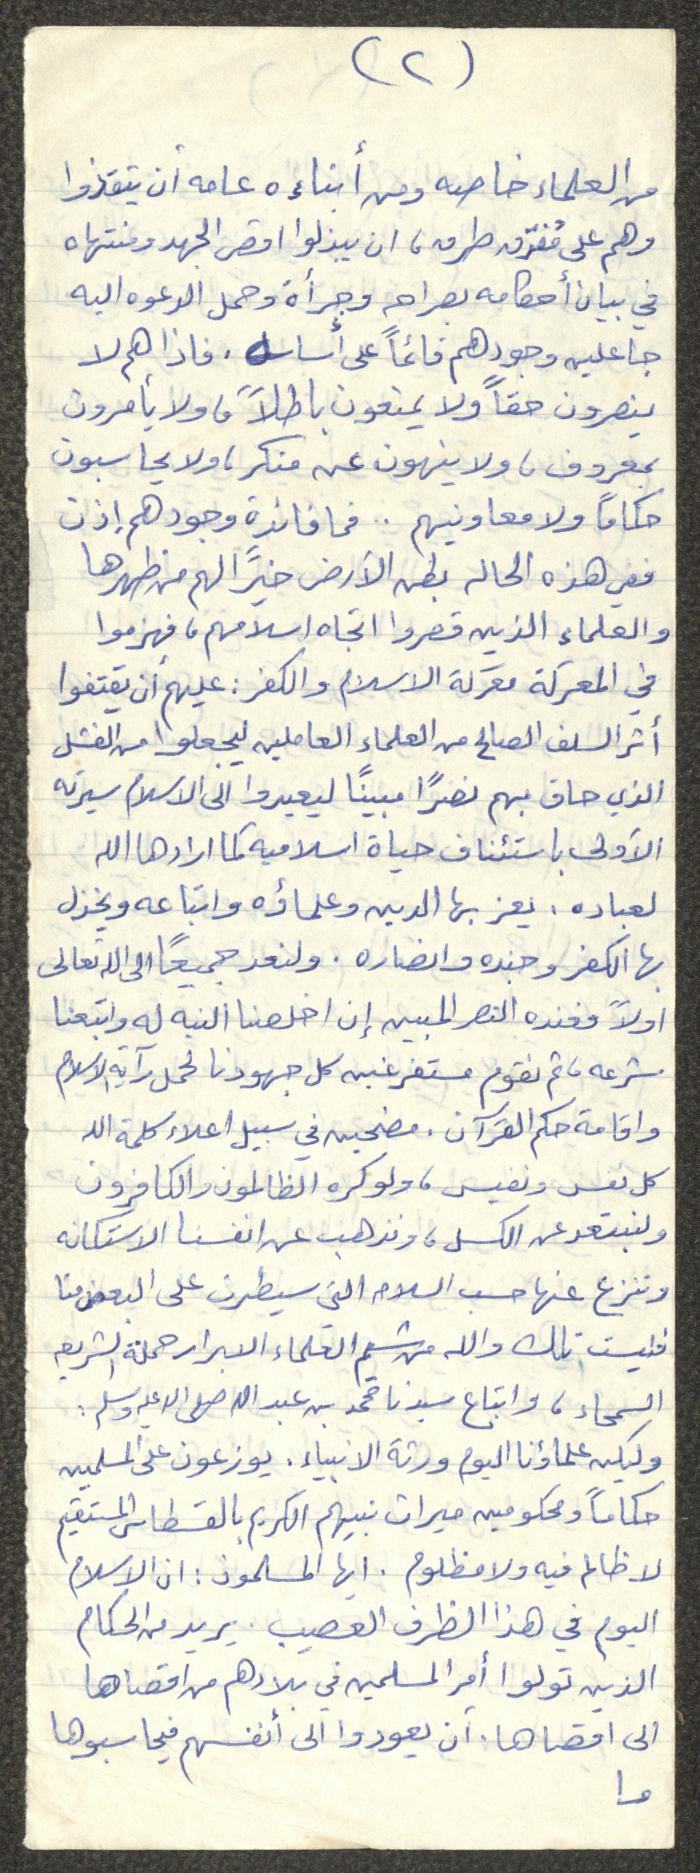 (٢)
من العلماء خاصه ومن أبناءه عامه أن ينقذوا
وهم على مفرق طرق، ان يبذلوا اقصى الجهد ومنتهاه
في بيان أحكامه بصراحه وجرأة وحمل الدعوه اليه
جاعلين وجودهم قائماً على أساسه. فاذا هم لا
ينصرون حقاً ولا يمنعون باطلاً، ولا يأمرون
بمعروف، ولا ينهون عن منكر، ولا يحاسبون
حكاماً ولا معاونيهم .. فما فائدة وجودهم إذن
ففي هذه الحاله بطن الأرض خيرًا لهم من ظهرها
والعلماء الذين قصروا اتجاه اسلامهم، فهزموا
في المعركة معركة الاسلام والكفر: عليهم أن يقتفوا
أثر السلف الصالح من العلماء العاملين ليجعلوا من الفشل
الذي حاق بهم نصرًا مبينًا ليعيدوا الى الاسلام سيرته
الأولى باستئناف حياة اسلاميه كما ارادها الله
لعباده. يعز بها الدين وعلماؤه واتباعه ويخذل
بها الكفر وجنده وانصاره. ولنعد جميعًا الى الله تعالى
اولاً فعنده النصر المبين إن اخلصنا النيه له واتبعنا
شرعه، ثم نقوم مستفرغين كل جهودنا لحمل رآية الاسلام
واقامة حكم القرآن. مضحين في سبيل اعلاء كلمة الله
كل نفس ونفيس، ولو كره الظالمون والكافرون
ولنبتعد عن الكسل، ونذهب عن انفسنا الاستكانه
وننزع عنها حب السلامه التي سيطرت على البعض منا
فليست تلك والله من شيم العلماء الابرار حملة الشريعه
السمحاء، واتباع سيدنا محمد بن عبد الله صلى الله عليه وسلم:
وليكن علماؤنا اليوم ورثة الانبياء. يوزعون على المسلمين
حكاماً ومحكومين ميراث نبيهم الكريم بالقسطاس المستقيم
لا ظالم فيه ولا مظلوم. ايها المسلمون: ان الاسلام
اليوم في هذا الظرف العصيب. يريد من الحكام
الذين تولوا أمر المسلمين في بلادهم من اقصاها
الى اقصاها. أن يعودوا الى أنفسهم فيحاسبوها
ما